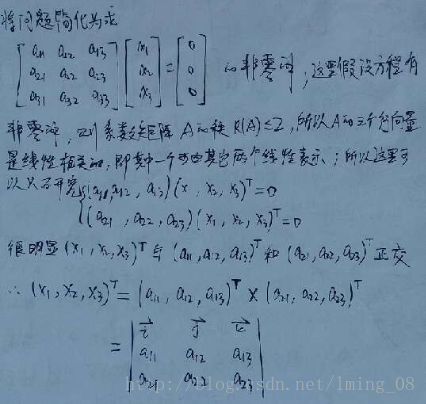 将问题简化为求
[a11 a12 a13; a21 a22 a23; a31 a32 a33] [x1; x2; x3] = [0; 0; 0] 的非零解,这里假设方程有
非零解,则系数矩阵A的秩R(A)≤2,所以A的三个行向量
是线性相关的,即其中一个可由其它两个线性表示;所以这里可
以只需考虑 { (a11, a12, a13)(x1, x2, x3)^T=0
(a21, a22, a23)(x1, x2, x3)^T=0
很明显(x1, x2, x3)^T与(a11, a12, a13)^T和(a21, a22, a23)^T正交
∴ (x1, x2, x3)^T = (a11, a12, a13)^T × (a21, a22, a23)^T
= | i⃗ j⃗ k⃗; a11 a12 a13; a21 a22 a23 |
http://blog.csdn.net/lming_08